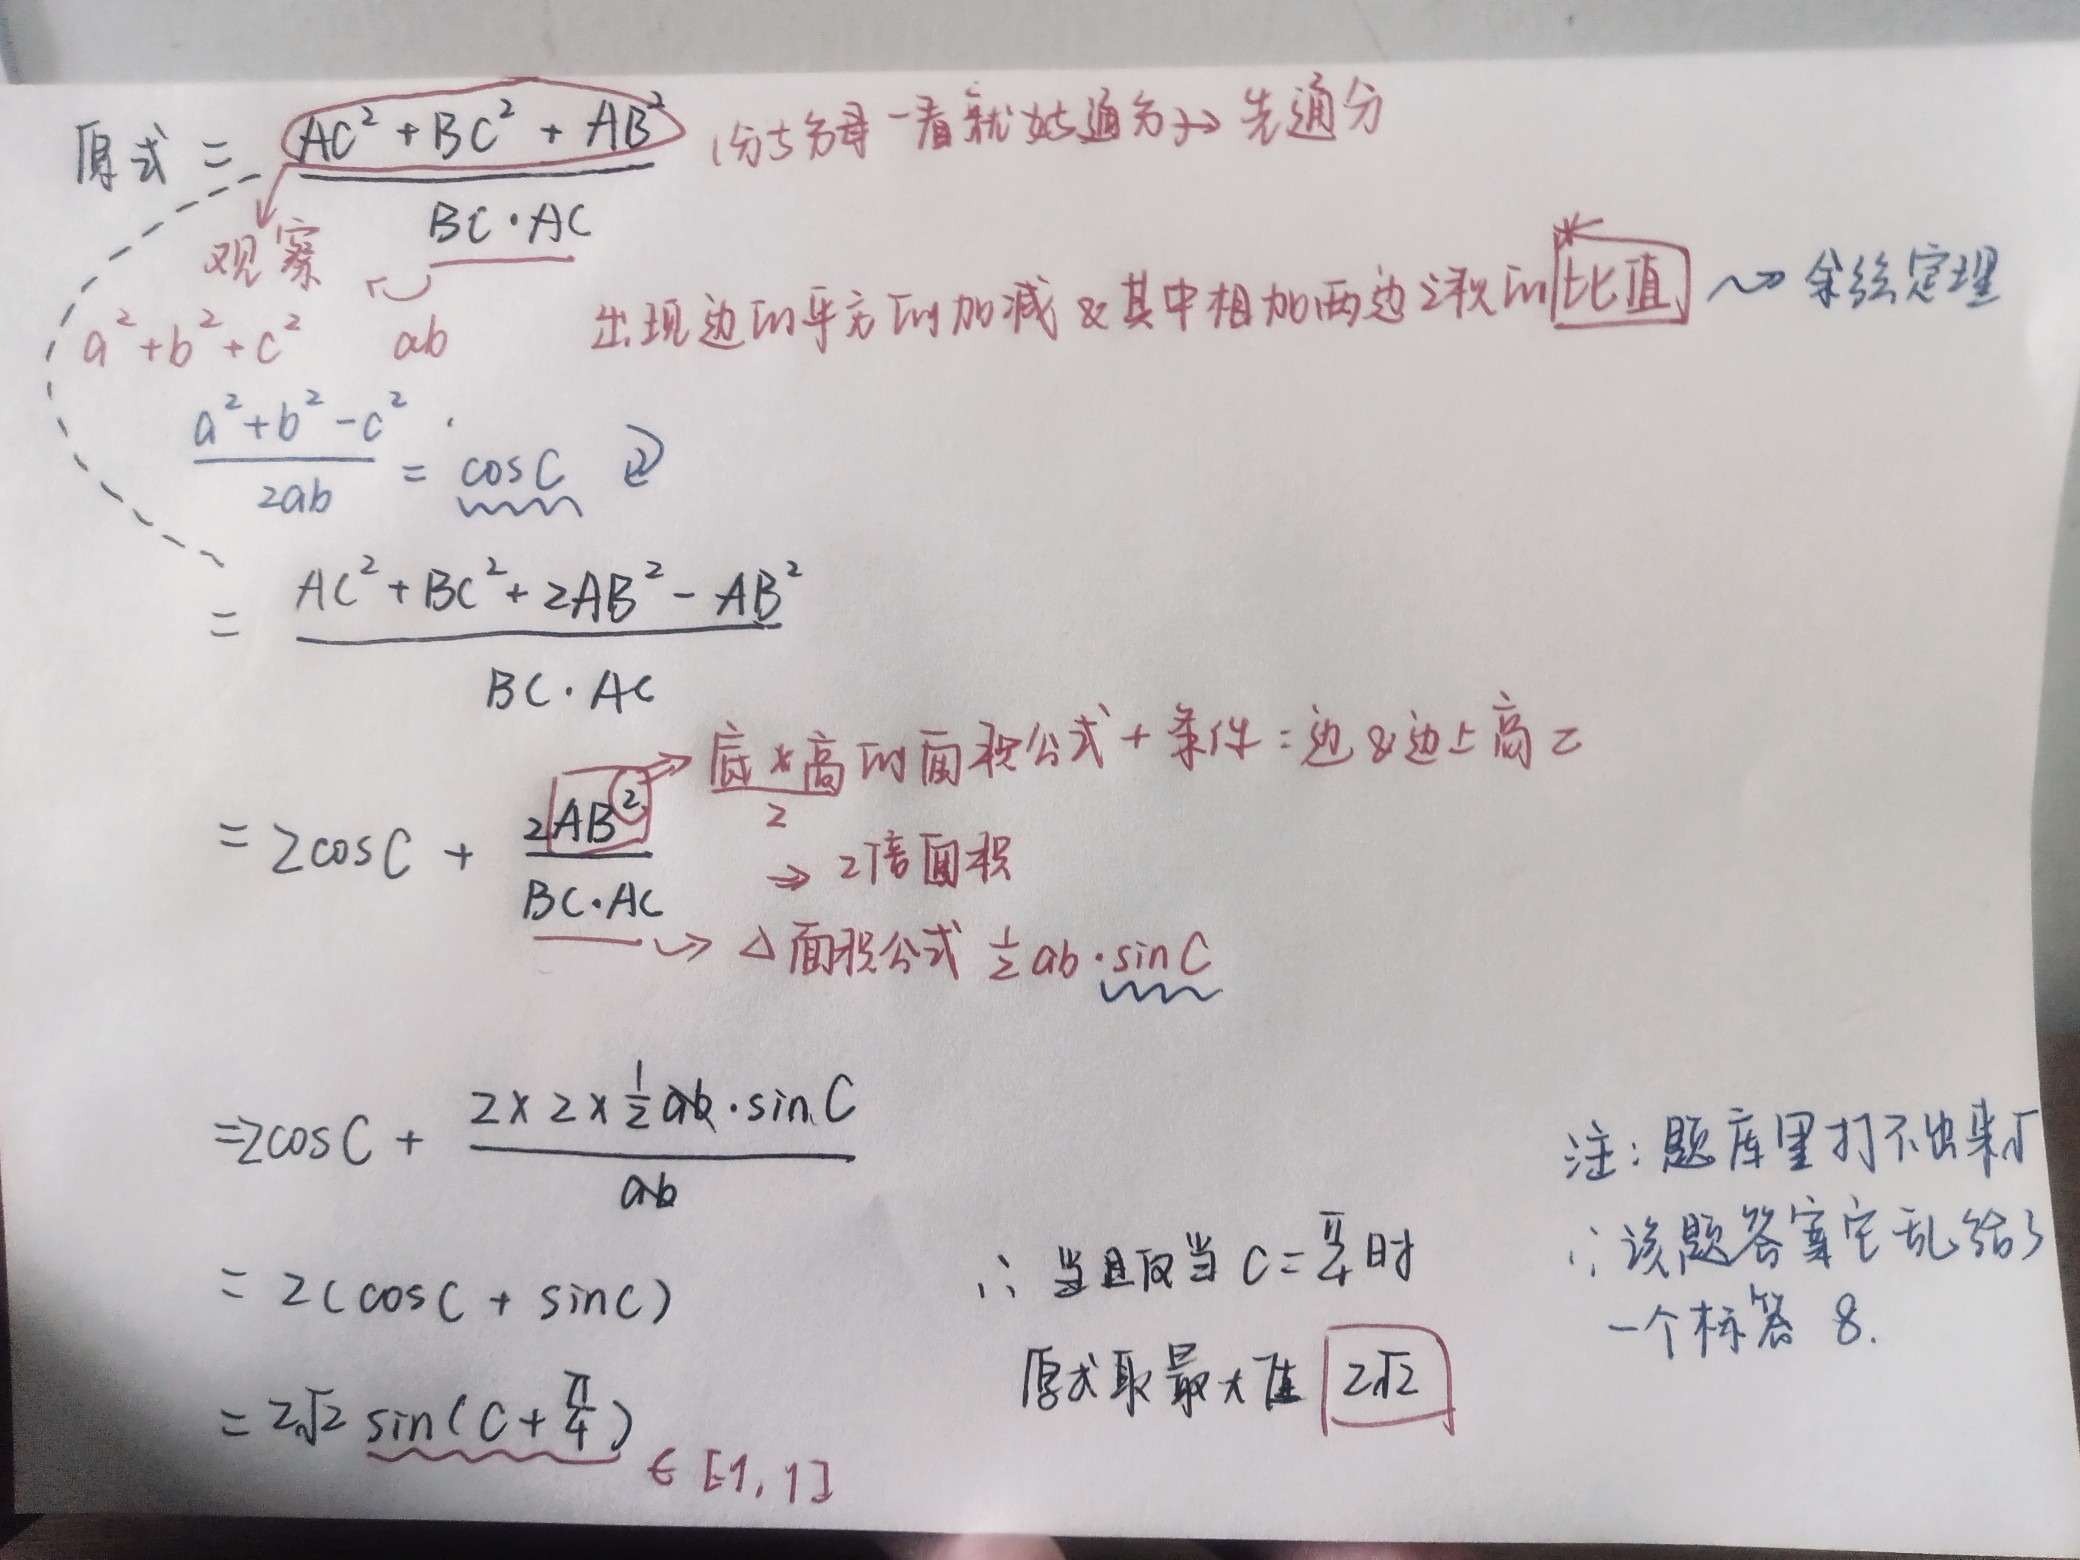 原式 = (AC² + BC² + AB²) / (BC·AC) 分母一看就好通分 → 先通分
观察
a² + b² + c² ab 出现边的平方的加减 & 其中相加两边之积的比值 ⇝ 余弦定理
(a² + b² - c²) / 2ab = cosC
= (AC² + BC² + 2AB² - AB²) / (BC·AC)
= 2cosC + 2AB² / (BC·AC) → 底×高/2 的面积公式 + 条件:边&边上高=
⇒ 2倍面积
→ △面积公式 ½ab·sinC
=2cosC + (2×2×½ab·sinC) / ab
= 2(cosC + sinC)
= 2√2 sin(C + π/4) ∈ [-1, 1]
∴ 当且仅当 C = π/4 时
原式取最大值 2√2
注:题库里打不出来√
∴该题答案它乱给了
一个标答 8.